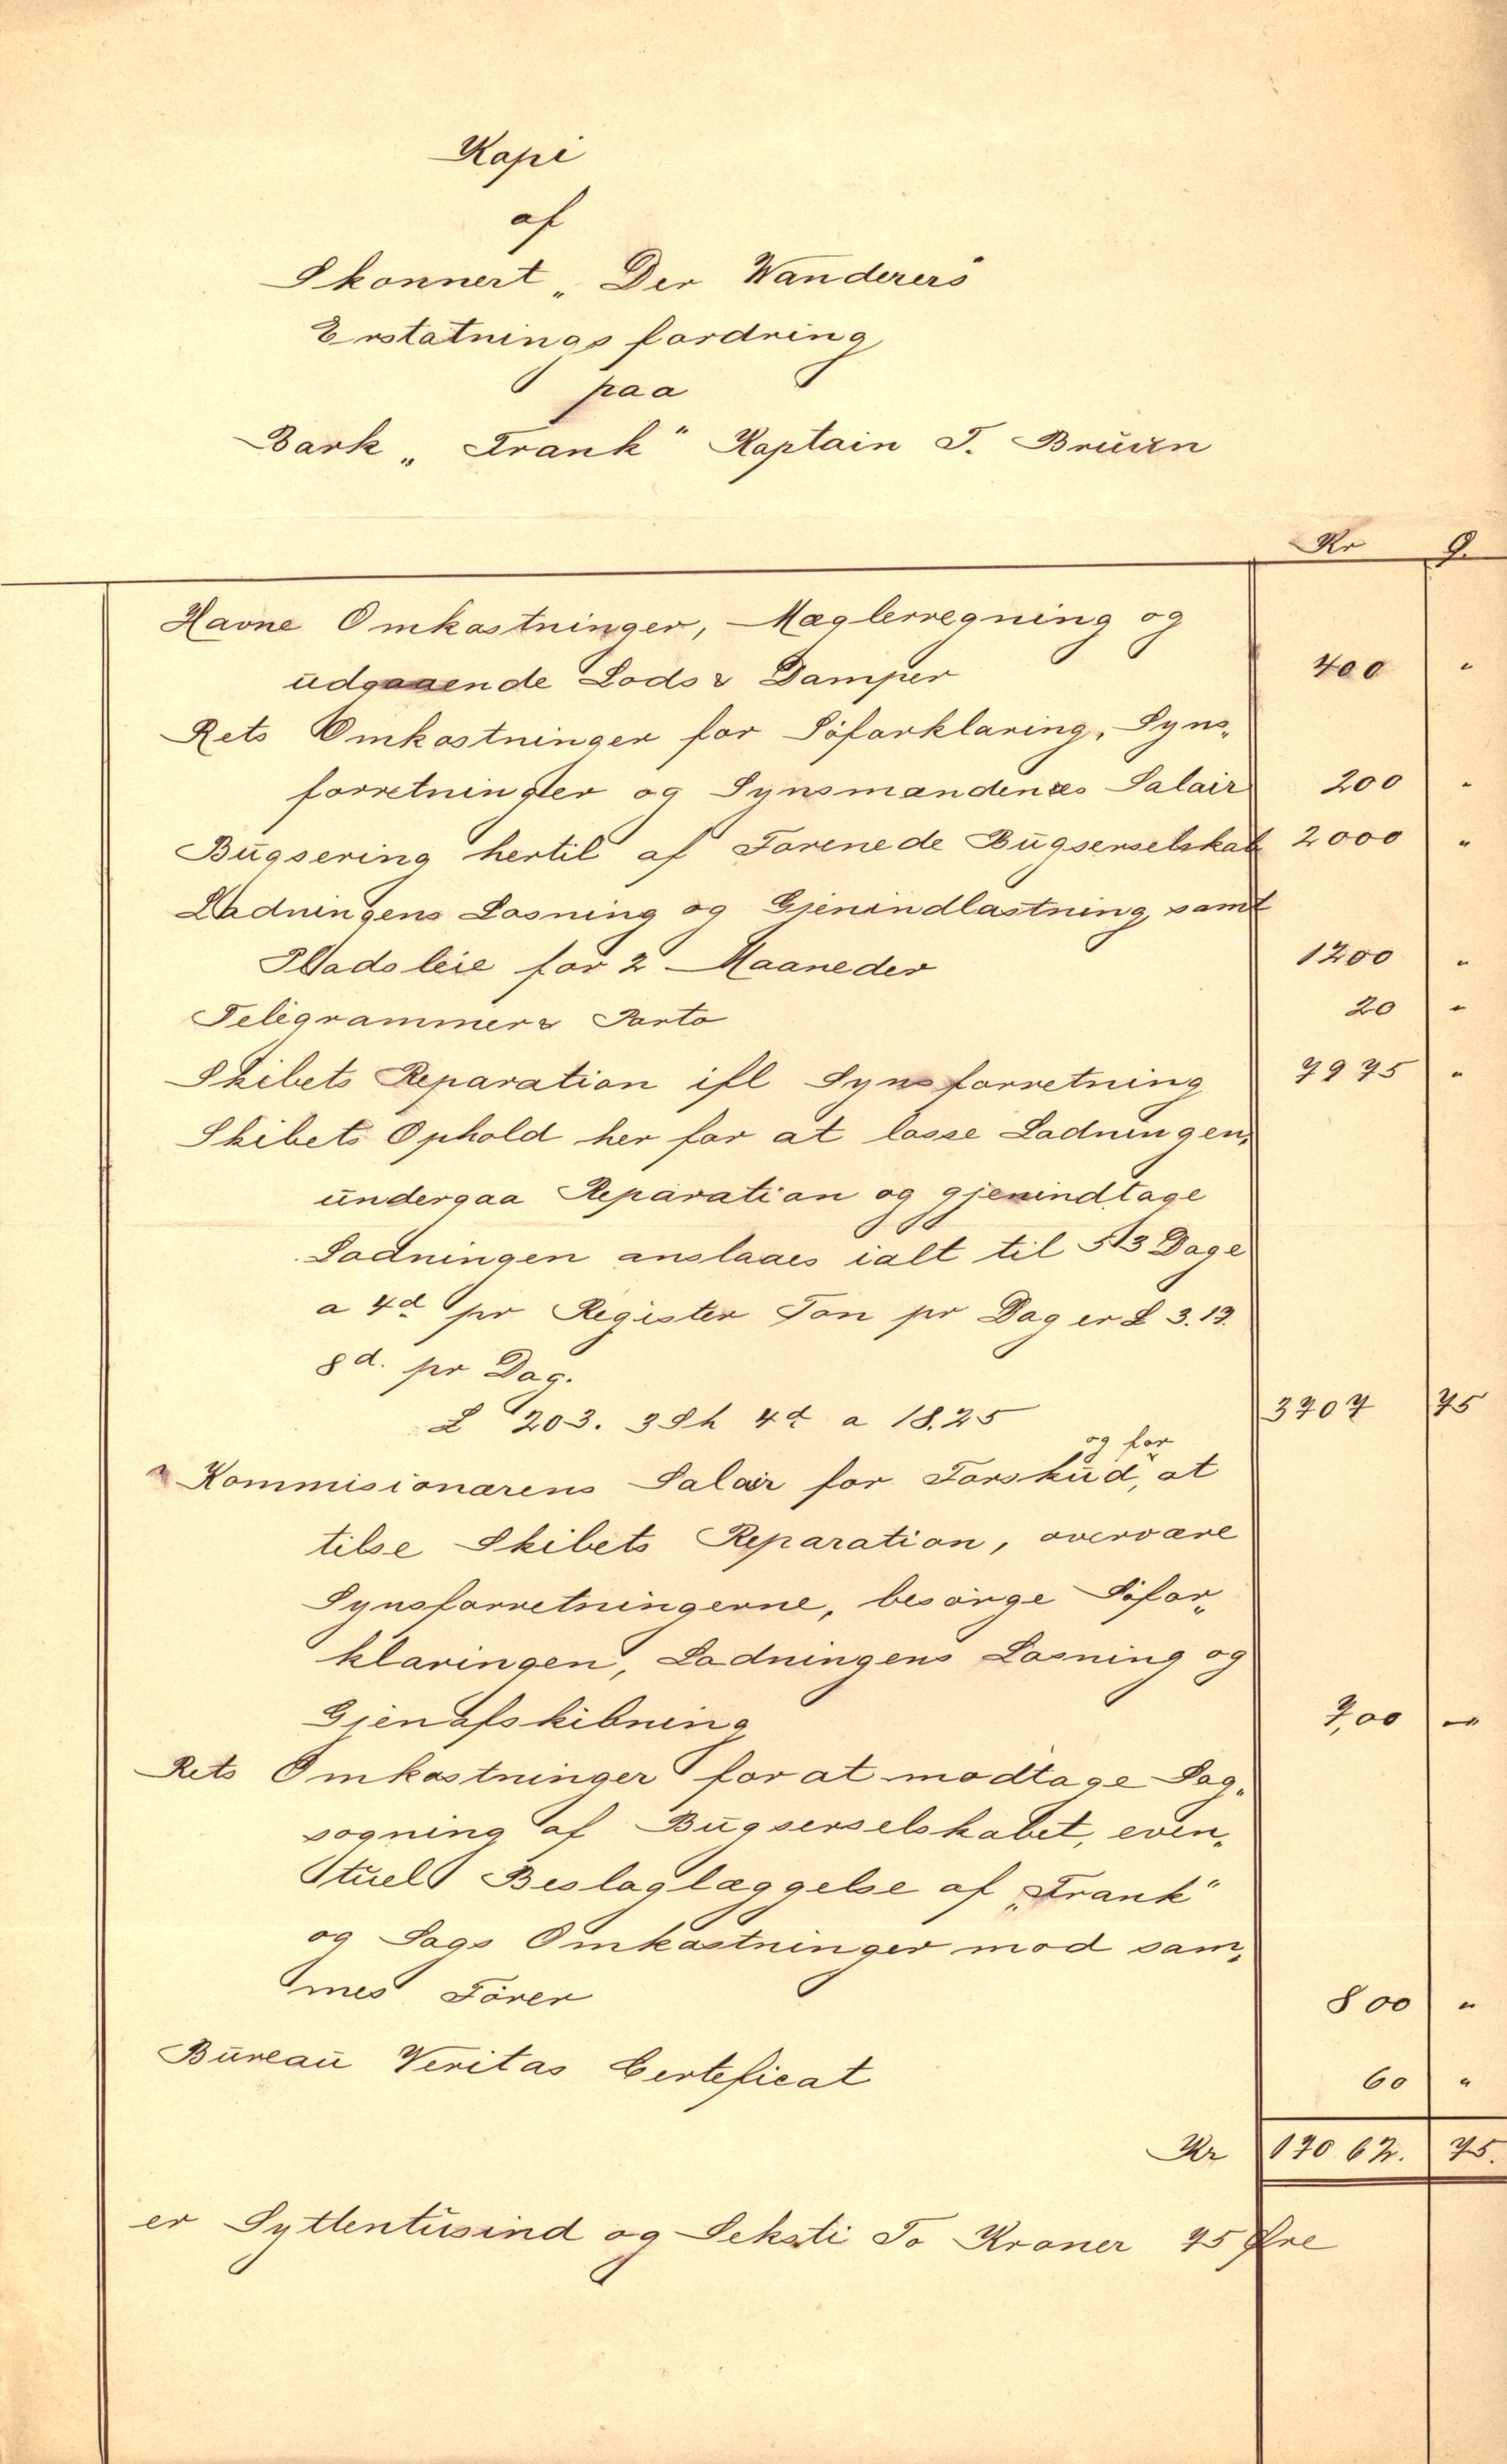 Kopi
af
Skonnert „Der Wanderers"
Erstatningsfordring
paa
Bark „Frank" Kaptain T. Bruun
Kr Ø.
Havne Omkostninger, Mæglerregning og
udgaaende Lods & Damper 400 "
Rets Omkostninger for Söforklaring, Syns„
forretninger og Synsmændenes Salair 200 "
Bugsering hertil af Forenede Bugserselskab 2000 "
Ladningens Losning og Gjenindlastning samt
Pladsleie for 2 Maaneder 1200 "
Telegrammer & Porto 20 "
Skibets Reparation ifl Synsforretning 7975 "
Skibets Ophold her for at losse Ladningen,
undergaa Reparation og gjenindtage
Ladningen anslaaes ialt til 53 Dage
a 4d pr Register Ton pr Dag er £ 3.13.
8d. pr Dag.
£ 203. 3Sh 4d a 18.25 3707 75
Kommisionærens Salair for Forskud, og for at
tilse Skibets Reparation, overvære
Synsforretningerne, besörge Söfor„
klaringen, Ladningens Losning og
Gjenafskibning 700 "
Rets Omkostninger for at modtage Sag„
sogning af Bugserselskabet, even„
tuel Beslaglæggelse af „Frank"
og Sags Omkostninger mod sam„
mes Förer 800 "
Bureau Veritas Certeficat 60 "
Kr 17062. 75.
er Syttentusind og Seksti To Kroner 75 Øre